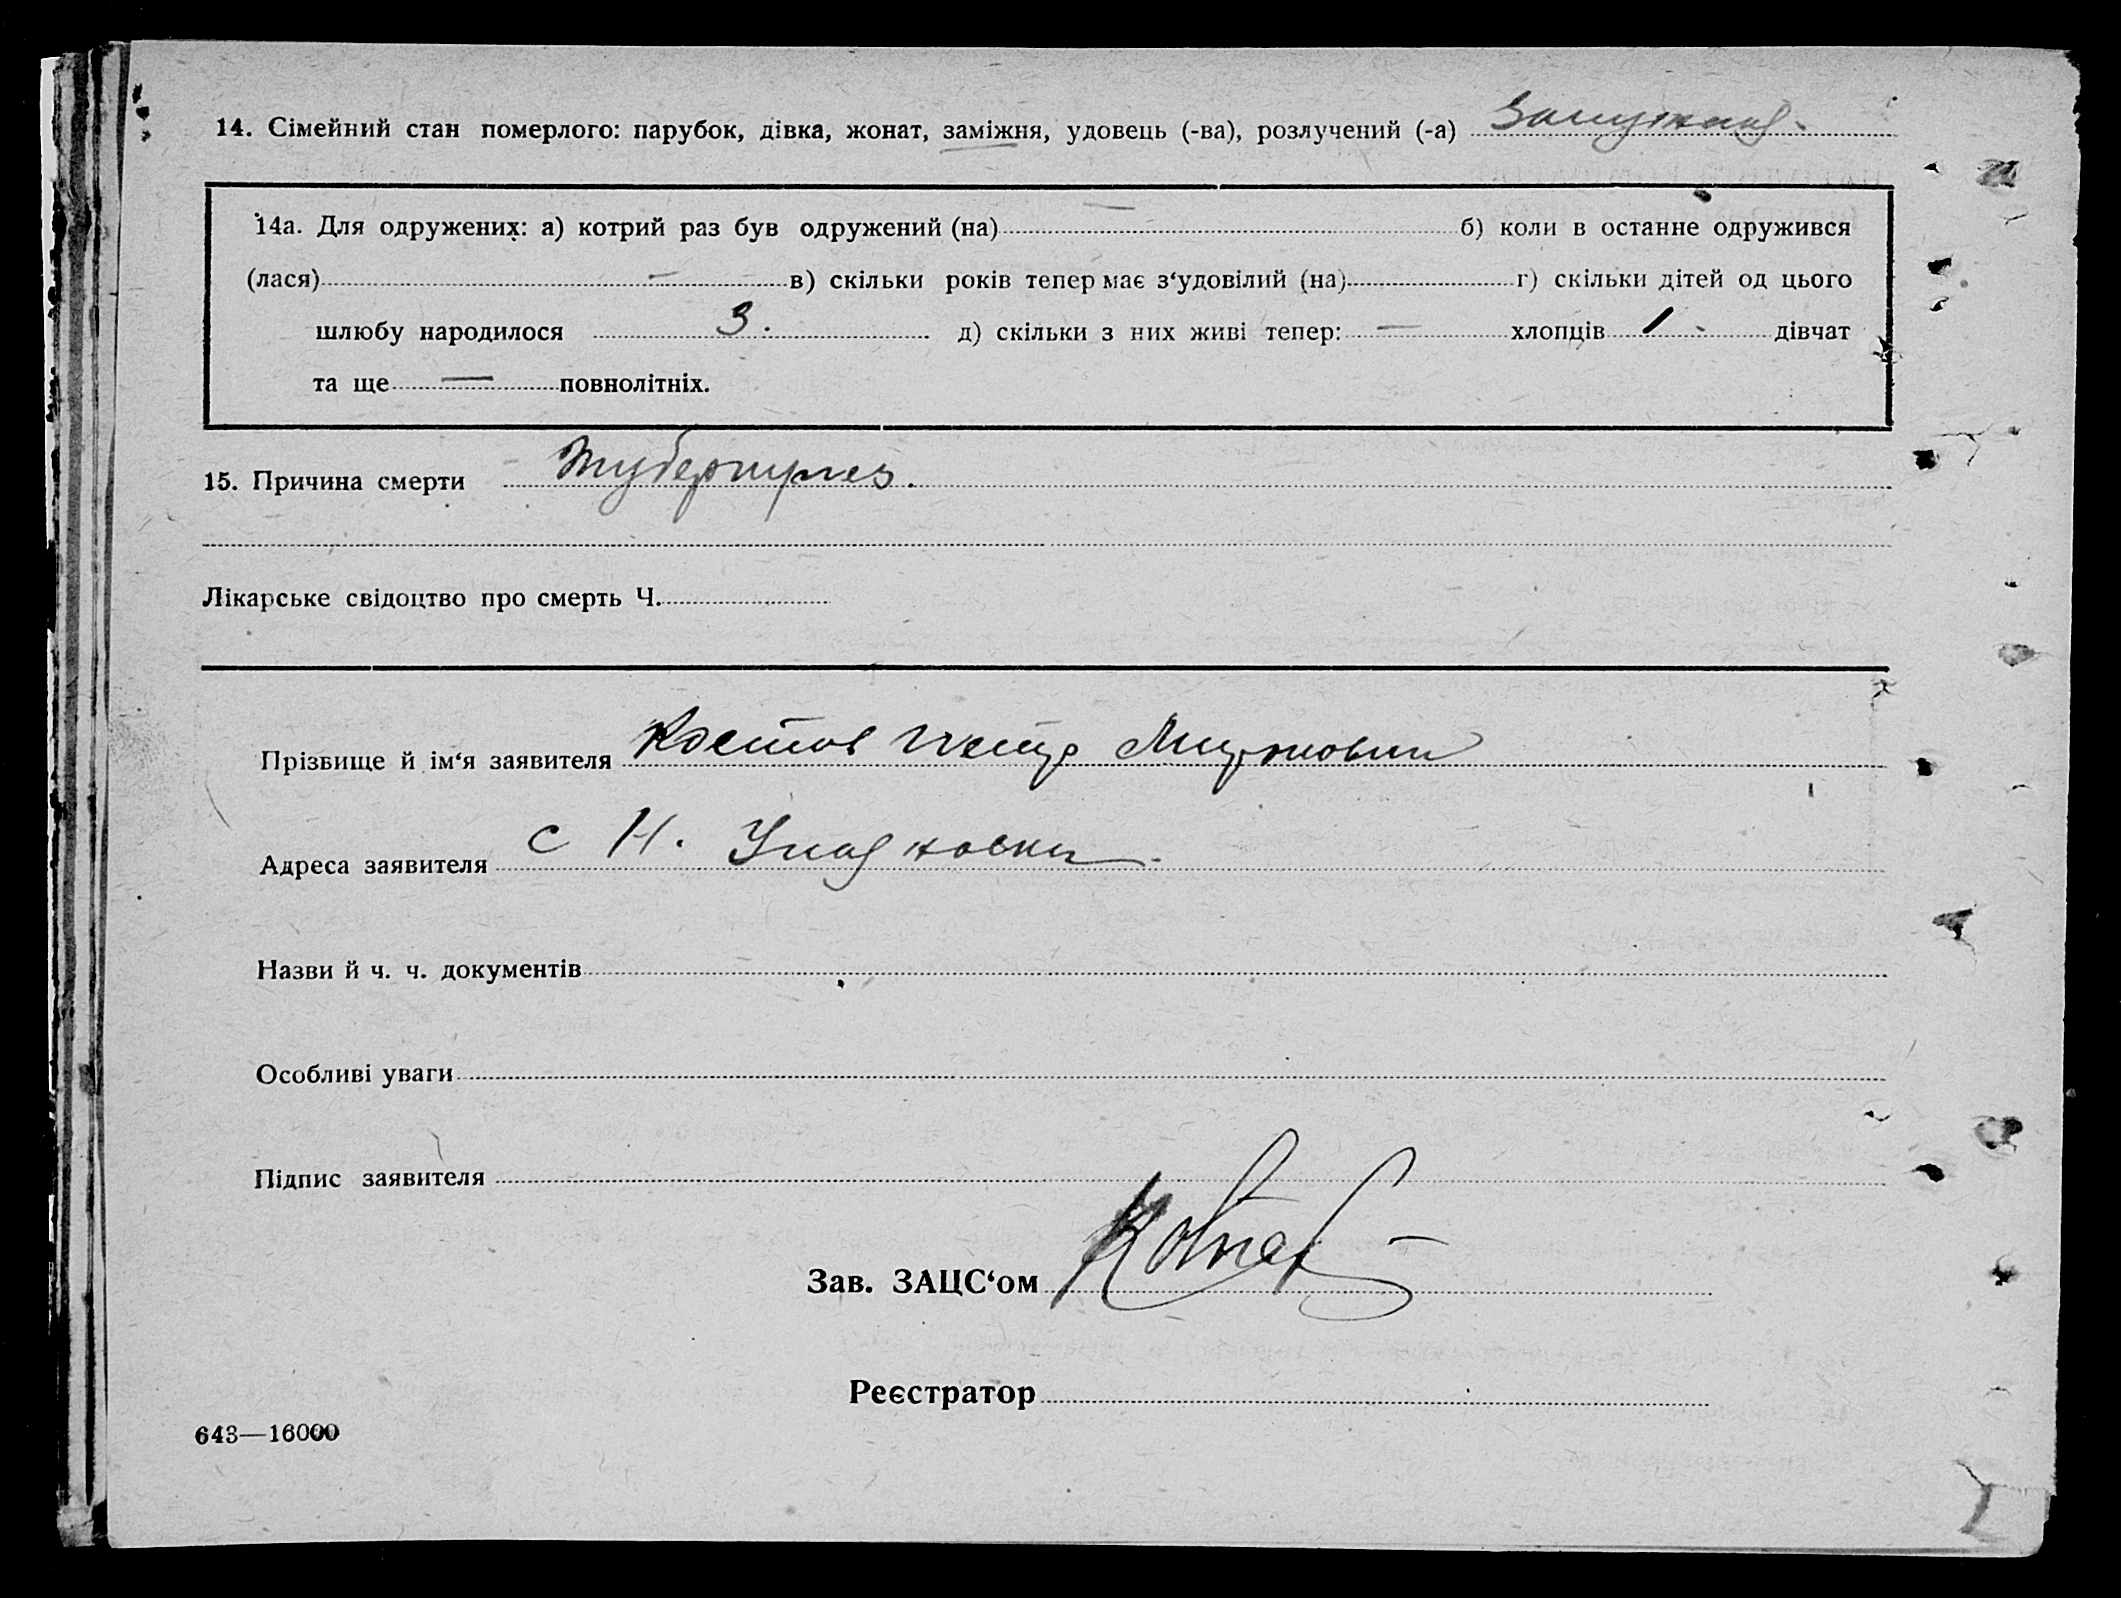 14. Сімейний стан померлого: парубок, дівка, жонат, заміжня, удовець (-ва), розлучений (-а) Замужная
14а. Для одружених: а) котрий раз був одружений (на) — б) коли в останне одружився
(лася) — в) скільки років тепер має з‘удовілий (на) г) скільки дітей од цього
шлюбу народилося 3. д) скільки з них живі тепер: — хлопців 1 дівчат
та ще — повнолітніх.
15. Причина смерти Туберкулез.
Лікарське свідоцтво про смерть Ч.
Прізвище й ім‘я заявителя Костов Петр
Адреса заявителя с Н.
Назви й ч. ч. документів
Особливі уваги
Підпис заявителя
Зав. ЗАЦС‘ом
Реєстратор
643—16000